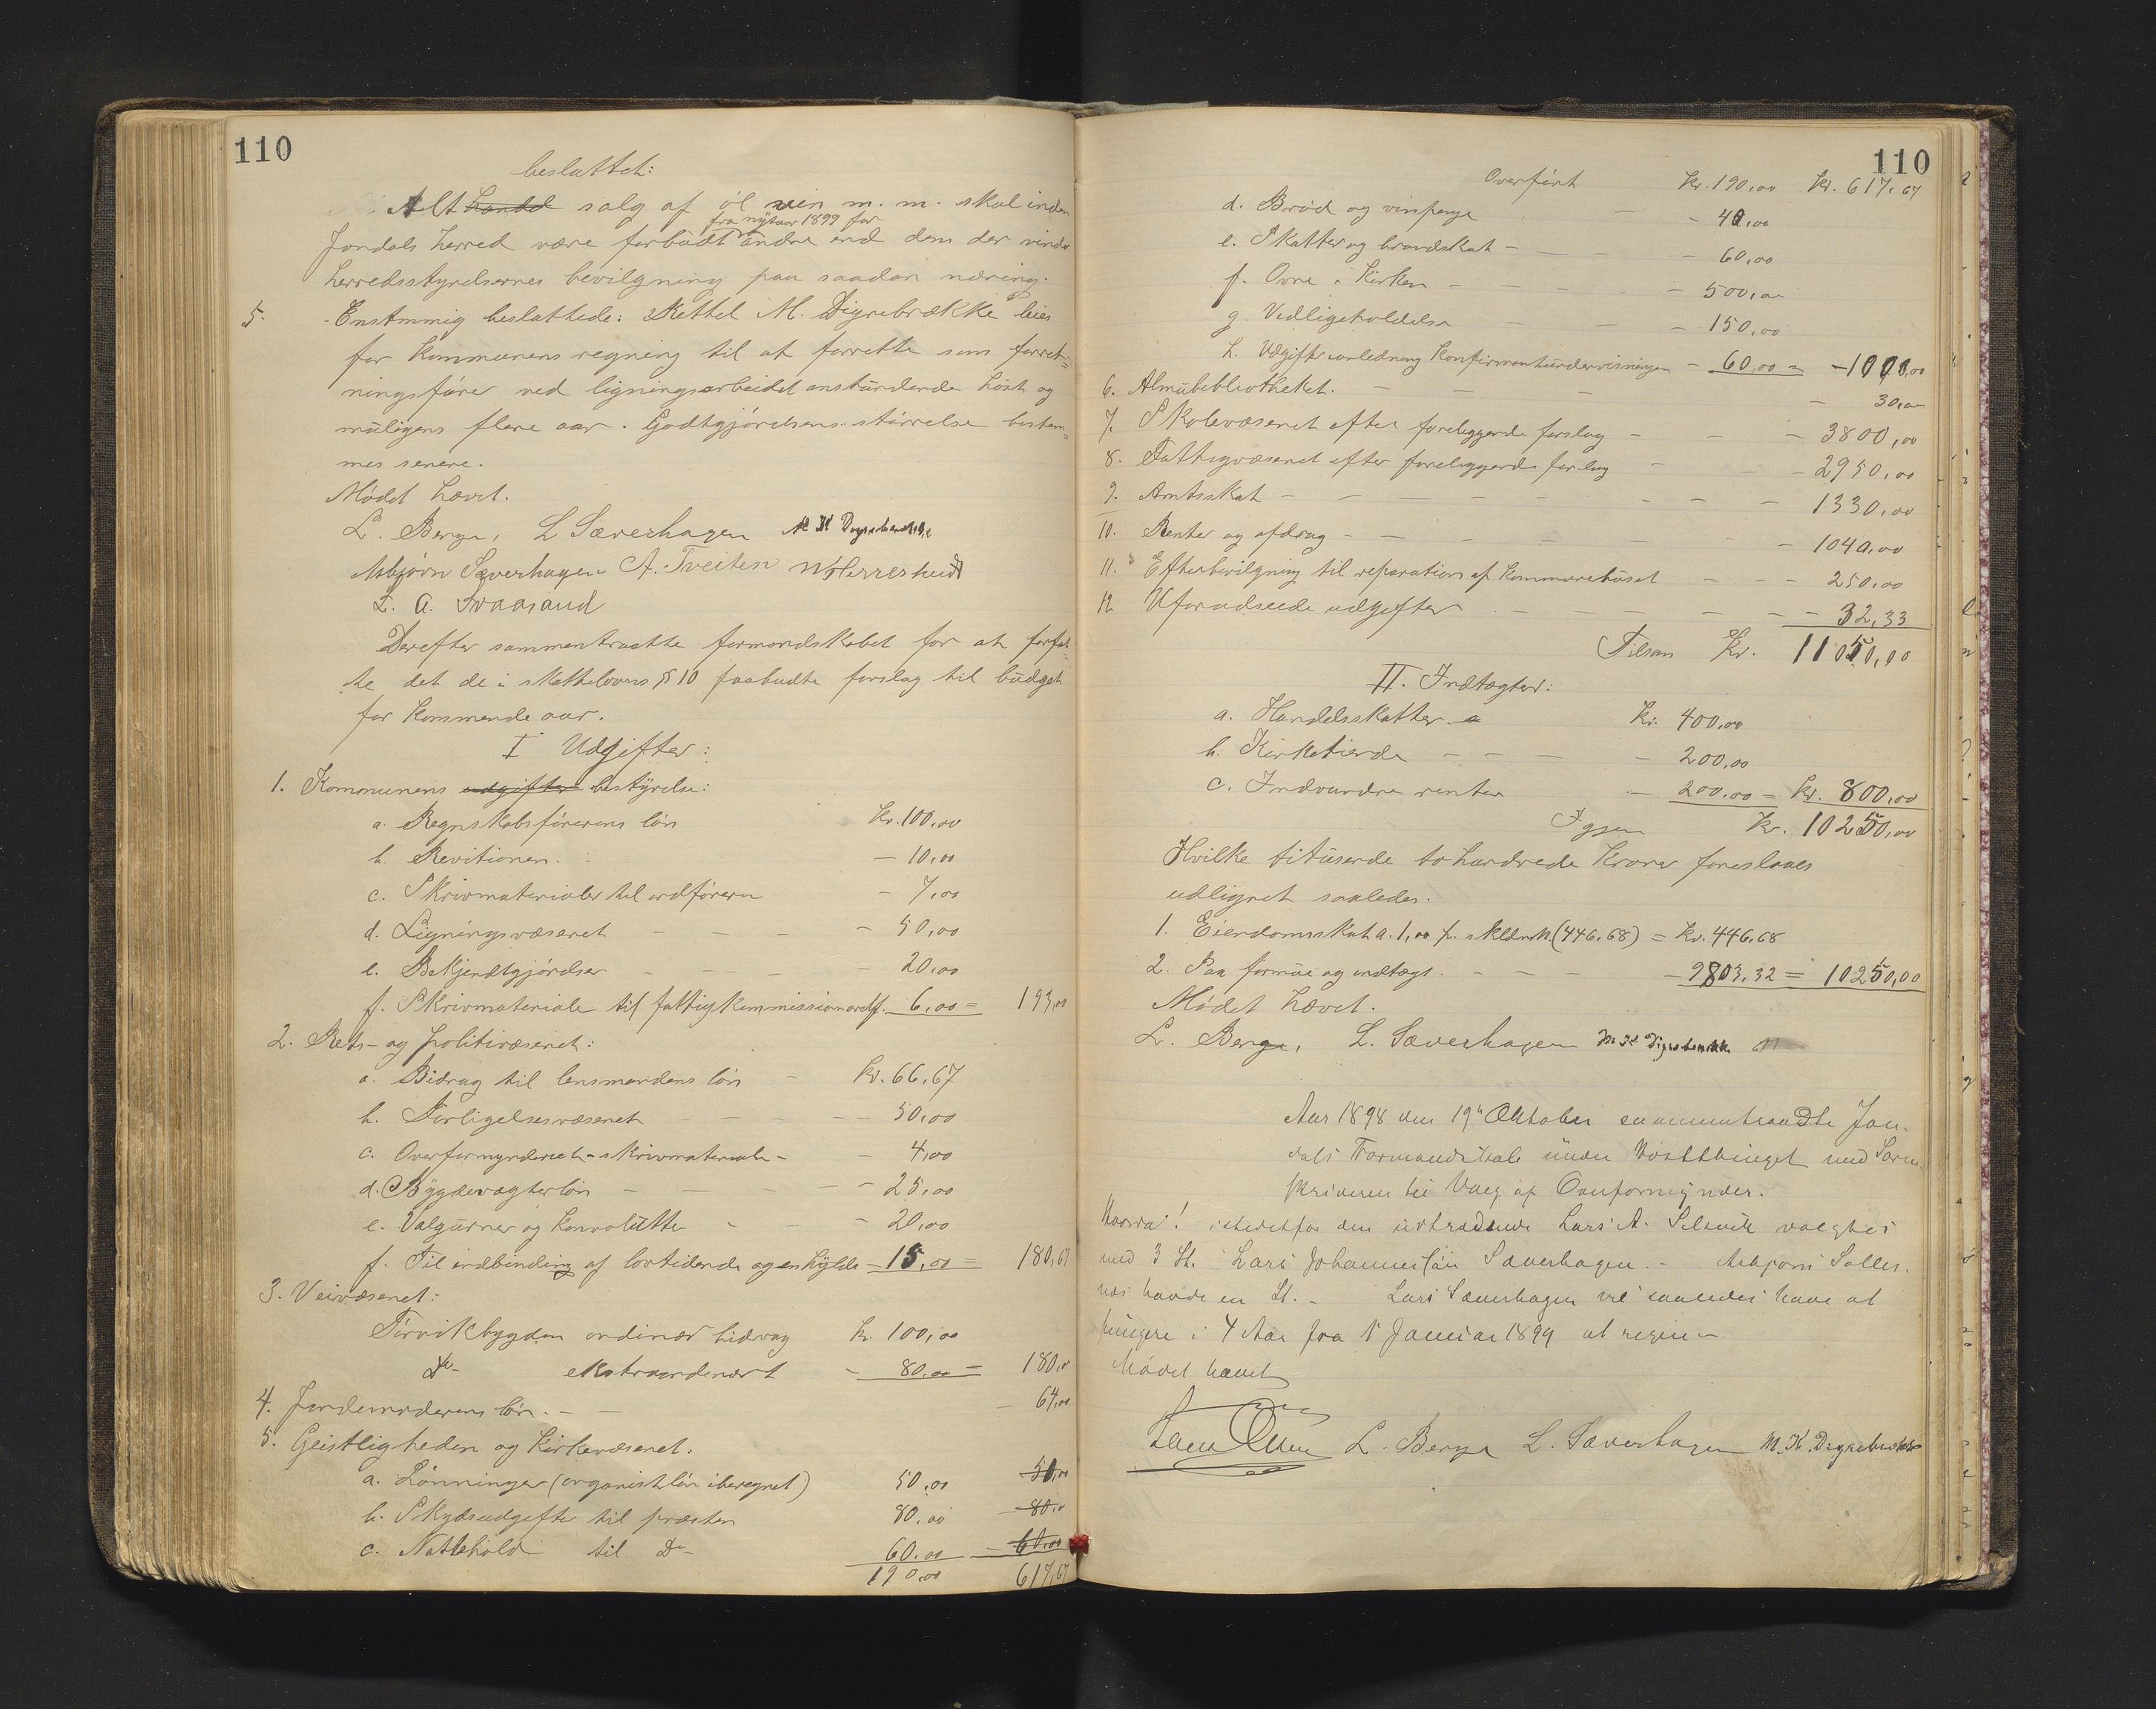 110
besluttet:
Alt handel salg af öl vin m. m. skal inden
fra nytaar 1899 for
Jondals herred være forbüdt andre end dem der vinder
herredsstyrelsernes bevilgning paa saadan næring.
5. Enstmmig besluttede: Kettel M. Digrebrække leies
for kommunens regning til at forrette som forret-
ningsförer ved ligningsarbeidet anstundende höst og
müligens flere aar. Godtgjörelsens störrelse bestem-
mes senere.
Mödet hævet.
L. Berge, L Sæverhagen M K Digrebrække
Asbjørn Sæverhagen A. Tveiten N Herreshud
L. A. Traasand
Derefter sammentraatte formandskabet for at forfat-
te det de i skatteloven § 10 paabudte forslag til büdget
for kommende aar.
I Udgifter:
1. Kommunens udgifter bestÿrelse:
a. Regnskabsförerens lön Kr. 100,00
b. Revitionen. — 10,00
c. Skrivmaterialer til ordföreren — 7,00
d. Ligningsvæsenet — — — — 50,00
e. Bekjendtgjördser — — — — 20,00
f. Skrivmateriale til fattigkommissionordf. — 6,00 = 193,00
2. Rets- og politivæsenet:
a. Bidrag til lensmandens lön — Kr. 66,67
b. Forligelsesvæsenet — — — — 50,00
c. Overformynderiet - skrivmateriale — — 4,00
d. Bÿgdevægterlön — — — — 25,00
e. Valgurner og konvolütter — — 20,00
f. Til indbinding af lovtidende og en hÿlde — 15,00 = 180,67
3. Veivæsenet:
Törvikbygden ordinær bidrag Kr. 100,00
Do ekstraordenært — 80,00 = 180,00
4. Jordemoderens lön. — — — 64,00
5. Geistligheden og Kirkevæsenet:
a. Lönninger (organistlön iberegnet) 50,00 50,00
b. Skydsudgifter til præsten 80,00 80,00
c. Nattehold til Do 60,00 — 60,00
190,00 617,67
110
Overfört Kr. 190,00 Kr. 617,67
d. Bröd og vinpenge — — 40,00
e. Skatter og brandskat — — — — 60,00
f. Ovne i Kirken — — — — 500,00
g. Vedligeholdelse — — — 150,00
h. Udgifter anledning Konfirmantündervisningen — 60,00 = — 1000,00
6. Almübibliotheket. — — — 30,00
7. Skolevæsenet efter foreliggende forslag — — — 3800,00
8. Fattigvæsenet efter foreliggende forslag — — 2950,00
9. Amtsskat — — — — — — — — 1330,00
10. Renter og afdrag — — — — — — — 1040,00
11. Efterbevilgning til reparation af Kommunehüset — — — 250,00
12. Uforudseede udgifter — — — — — — 32,33
Tilsam Kr. 11050,00
II. Indtægter:
a. Handelsskatter Kr. 400,00
b. Kirketiende — — — — 200,00
c. Indvundne renter — 200,00 = Kr. 800,00
Igjen Kr. 10250,00
Hvilke titüsende tohundrede Kroner foreslaaes
udlignet saaledes.
1. Eiendomsskat a. 1,00 p. skldmk. (446,68) = Kr. 446,68
2. Paa formüe og indtægt. — — — — 9803,32 = 10250,00
Mödet hævet.
L. Berge, L. Sæverhagen M K Digrebrække
Aar 1898 den 19de Oktober sammentraadte Jon-
dals Formandskab ünder Høstthinget med Soren-
skriveren til Valg af Overformynder.
Hvorpaa! istedetfor den udtrædende Lars A. Selsvik valgtes
med 3 St. Lars Johannessøn Sæverhagen. — Asbjørn Solles-
næs havde en St. — Lars Sæverhagen vil saaledes have at
fungere i 4 Aar fra 1 Januar 1899 at regne —
Mødet hævet
L. Berge L. Sæverhagen M. K. Digrebrække